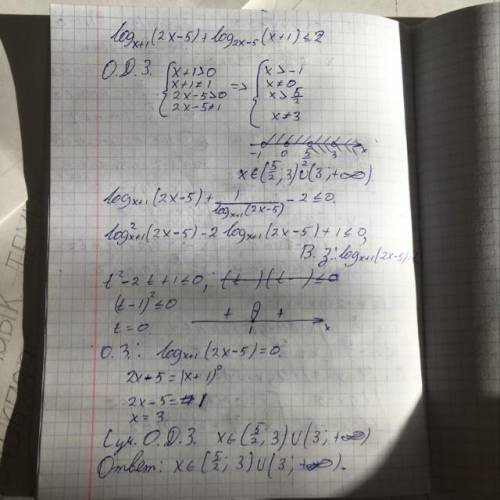 log_{x+1}(2x-5)+log_{2x-5}(x+1)≤2
О.Д.З. { x+1>0 => { x>-1
x+1≠1 x≠0
2x-5>0 x>5/2
2x-5≠1 x≠3
-1 0 5/2 3 x
x∈(5/2; 3)∪(3; +∞).
log_{x+1}(2x-5)+1/log_{x+1}(2x-5)-2≤0.
log²_{x+1}(2x-5)-2log_{x+1}(2x-5)+1≤0,
В.з.: log_{x+1}(2x-5)=
t²-2t+1≤0; (t )(t )≤0
(t-1)²≤0 + +
t=0 1 x
О.З.: log_{x+1}(2x-5)=0.
2x-5=(x+1)⁰
2x-5=1
x=3.
О.Д.З. x∈(5/2; 3)∪(3; +∞)
Ответ: x∈(5/2; 3)∪(3; +∞).